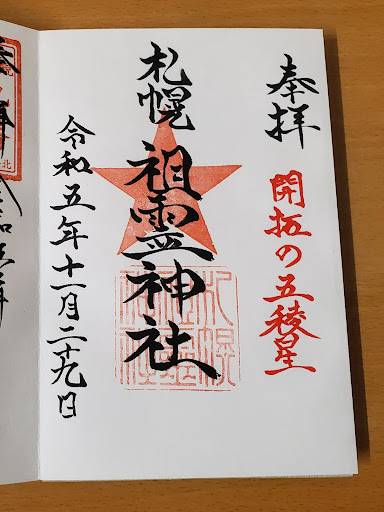 奉拝
開拓の五稜星
札幌祖霊神社
令和五年十一月二十九日